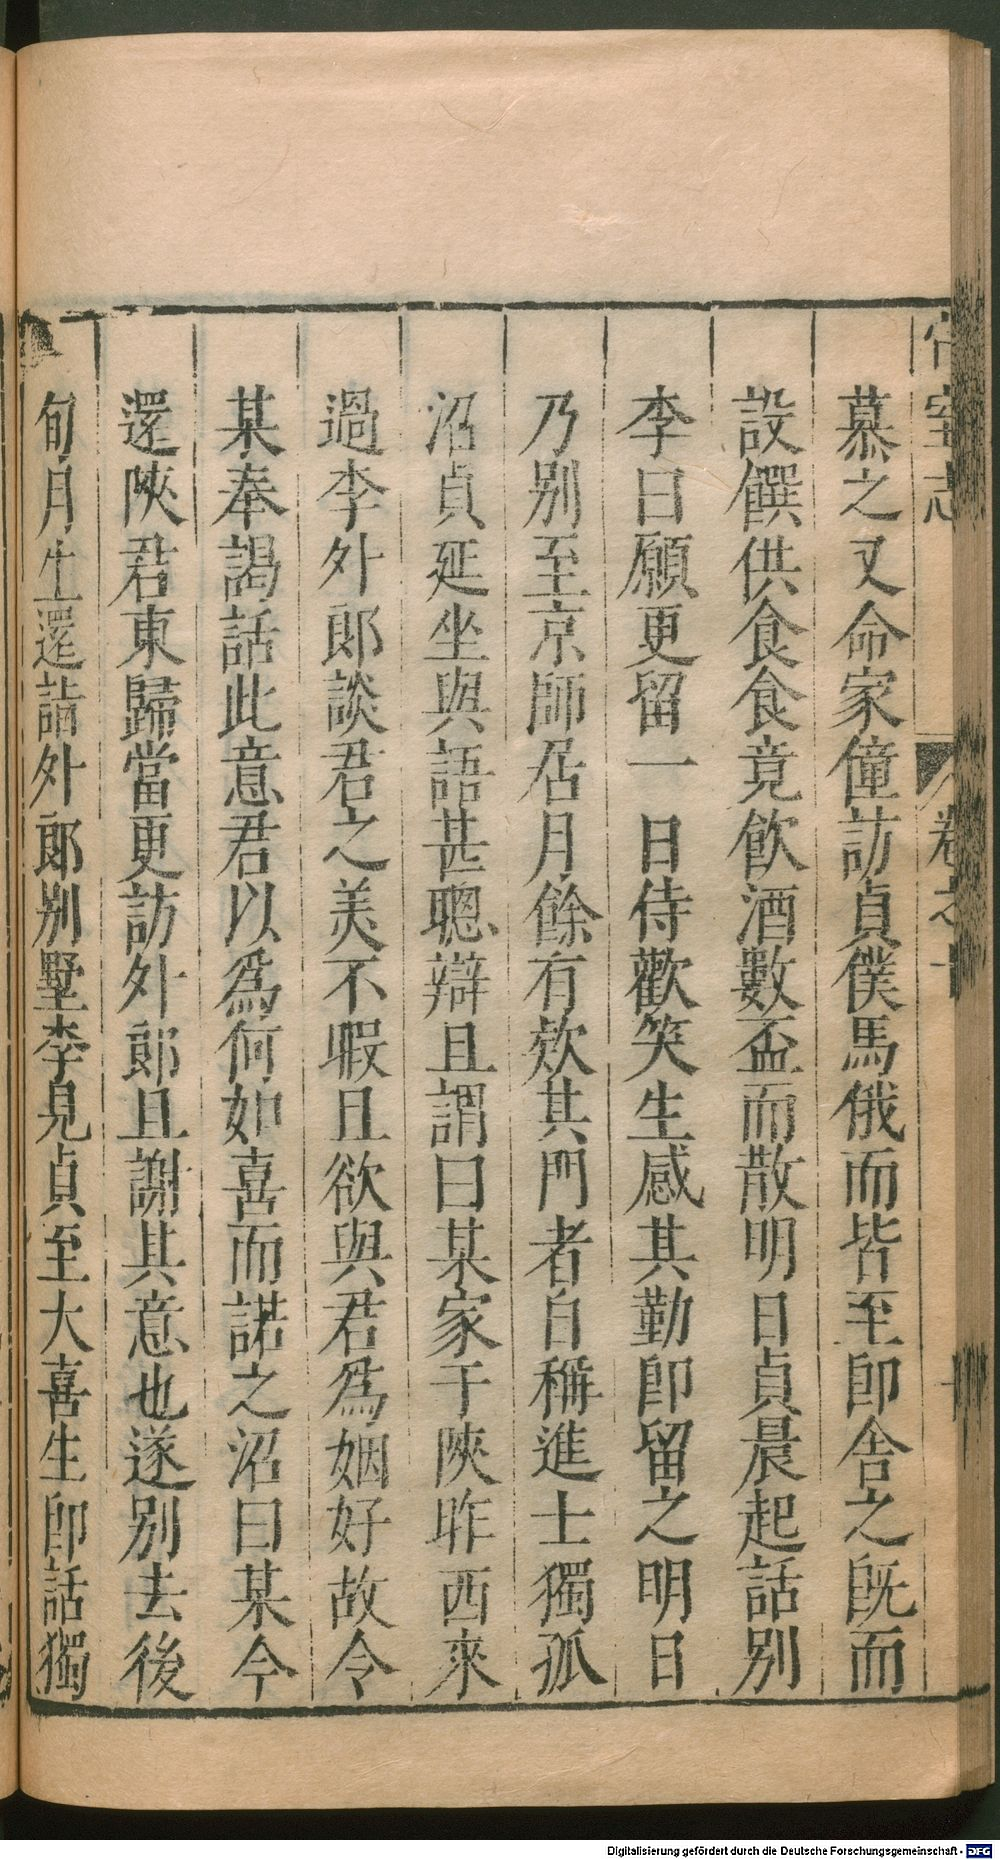 宣室志 卷之十
慕之又命家僮訪貞僕馬俄而皆至即舍之旣而
設饌供食食竟飲酒數盃而散明日貞晨起話別
李曰願更留一日侍歡笑生感其勤卽留之明日
乃别至京師居月餘有欵其門者自稱進士獨孤
沼貞延坐與語甚聰辯且謂曰某家于陝昨西來
過李外郎談君之美不暇且欲與君爲姻好故令
某奉謁話此意君以爲何如喜而諾之沼曰某今
還陝君東歸當更訪外郎且謝其意也遂别去後
旬月生還詣外郎别墅李見貞至大喜生卽話獨
Digitalisierung gefördert durch die Deutsche Forschungsgemeinschaft - DFG